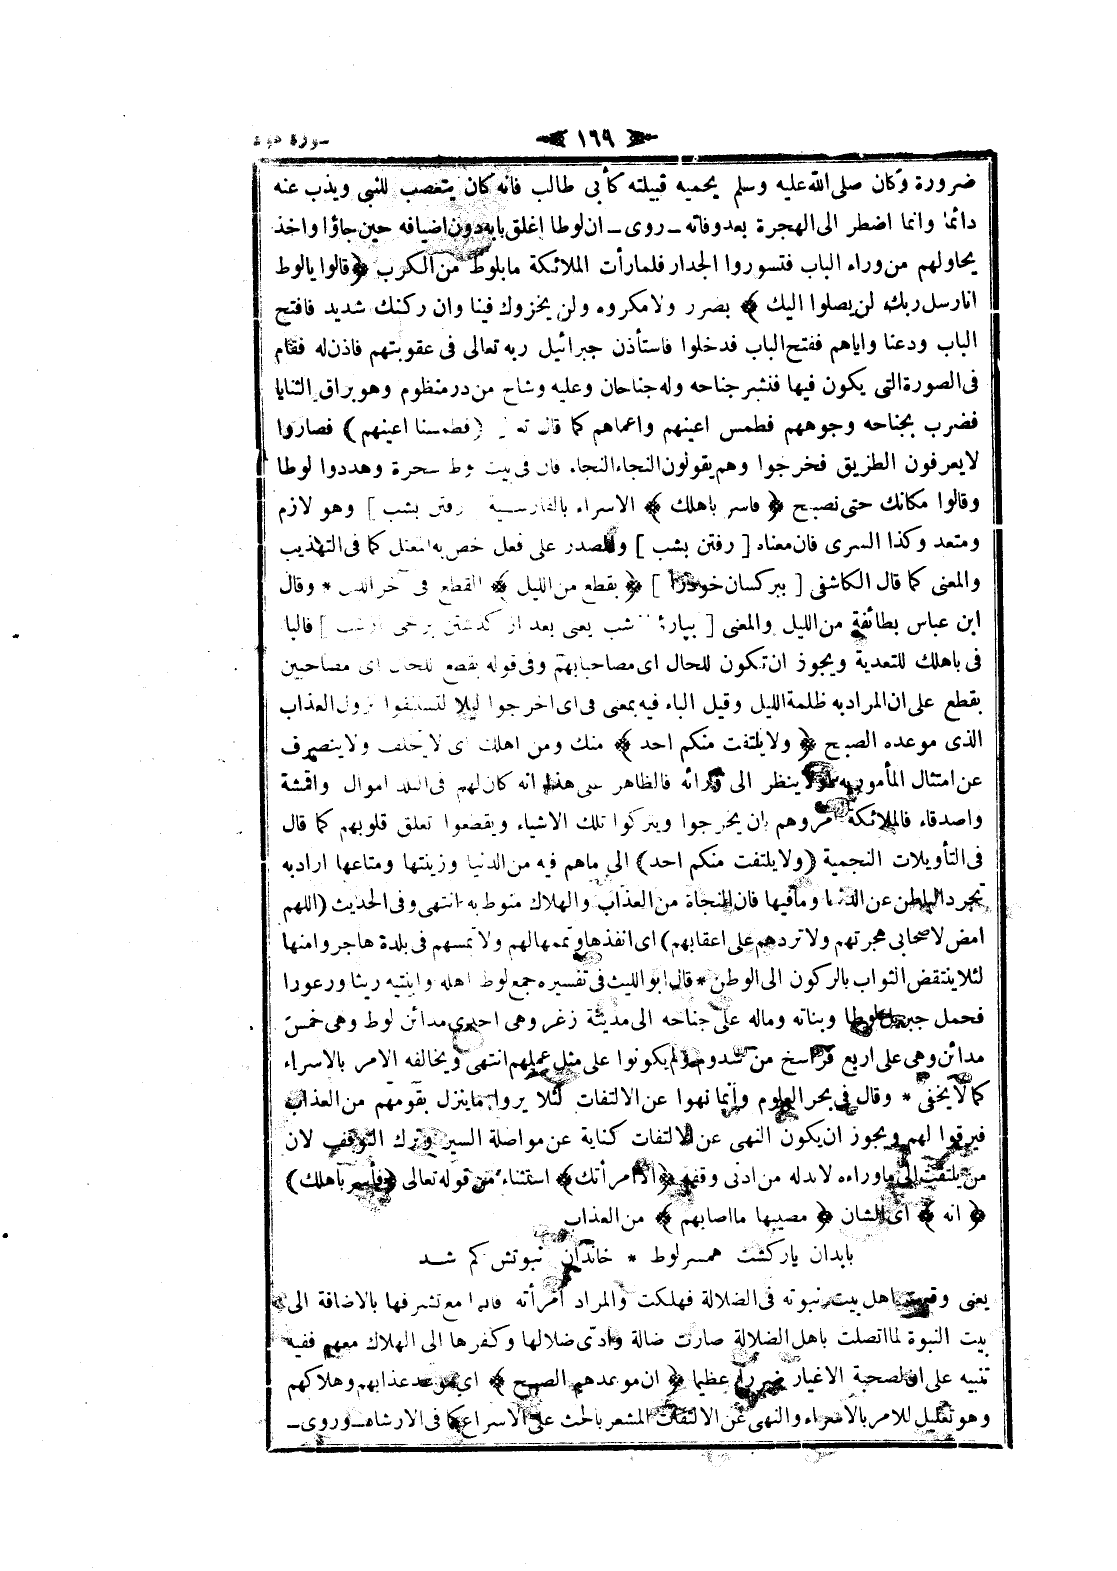 ﴿ ١٦٩ ﴾ سورة هود
ضرورة وكان صلى الله عليه وسلم يحميه قبيلته كأبى طالب فانه كان يتعصب للنبى ويذب عنه
دائما وانما اضطر الى الهجرة بعد وفاته ــ روى ــ ان لوطا اغلق بابه دون اضيافه حين جاؤا واخذ
يحاولهم من وراء الباب فتسوروا الجدار فلما رأت الملائكة ما بلوط من الكرب ﴿ قالوا يالوط
انا رسل ربك لن يصلوا اليك ﴾ بضرر ولا مكروه ولن يخزوك فينا وان ركنك شديد فافتح
الباب ودعنا واياهم ففتح الباب فدخلوا فاستأذن جبرائيل ربه تعالى فى عقوبتهم فاذن له فقام
فى الصورة التى يكون فيها فنشر جناحه وله جناحان وعليه وشاح من در منظوم وهو براق الثنايا
فضرب بجناحه وجوههم فطمس اعينهم واعماهم كما قال تعالى (فطمسنا اعينهم) فصاروا
لا يعرفون الطريق فخرجوا وهم يقولون النجاء النجاء فان فى بيت لوط سحرة وهددوا لوطا
وقالوا مكانك حتى نصبح ﴿ فاسر باهلك ﴾ الاسراء بالفارسية [ رفتن بشب ] وهو لازم
ومتعد وكذا السرى فان معناه [ رفتن بشب ] والمصدر على فعل خص به المعتل كما فى التهذيب
والمعنى كما قال الكاشفى [ ببر كسان خودرا ] ﴿ بقطع من الليل ﴾ القطع فى آخر الليل * وقال
ابن عباس بطائفة من الليل والمعنى [ بپارۀ شب يعنى بعد از گذشتن برخى از شب ] فالباء
فى باهلك للتعدية ويجوز ان تكون للحال اى مصاحبا بهم وفى قوله بقطع للحال اى مصاحبين
بقطع على ان المراد به ظلمة الليل وقيل الباء فيه بمعنى فى اى اخرجوا ليلا لتستبقوا نزول العذاب
الذى موعده الصبح ﴿ ولا يلتفت منكم احد ﴾ منك ومن اهلك اى لا يتخلف ولا ينصرف
عن امتثال المأمور به ولا ينظر الى ورائه فالظاهر على هذا انه كان لهم فى البلد اموال واقمشة
واصدقاء فالملائكة امروهم بان يخرجوا ويتركوا تلك الاشياء ويقطعوا تعلق قلوبهم كما قال
فى التأويلات النجمية (ولا يلتفت منكم احد) الى ماهم فيه من الدنيا وزينتها ومتاعها اراد به
تجرد الباطن عن الدنيا ومافيها فان النجاة من العذاب والهلاك منوط به انتهى وفى الحديث (اللهم
امض لاصحابى هجرتهم ولا تردهم على اعقابهم) اى انفذها وتممها لهم ولا تمسهم فى بلدة هاجروا منها
لئلا ينتقض الثواب بالركون الى الوطن * قال ابو الليث فى تفسيره جمع لوط اهله وابنتيه ريثا ورعورا
فحمل جبريل لوطا وبناته وماله على جناحه الى مدينة زغر وهى احدى مدائن لوط وهى خمس
مدائن وهى على اربع فراسخ من سدوم ولم يكونوا على مثل عملهم انتهى ويخالفه الامر بالاسراء
كما لا يخفى * وقال فى بحر العلوم وانما نهوا عن الالتفات لئلا يروا ما ينزل بقومهم من العذاب
فيرقوا لهم ويجوز ان يكون النهى عن الالتفات كناية عن مواصلة السير وترك التوقف لان
من يلتفت الى ماوراءه لابد له من ادنى وقفة ﴿ الا امرأتك ﴾ استثناء من قوله تعالى (فأسر بأهلك)
﴿ انه ﴾ اى الشان ﴿ مصيبها ما اصابهم ﴾ من العذاب
بابدان يار گشت همسر لوط * خاندان نبوتش گم شد
يعنى وقعت اهل بيت نبوته فى الضلالة فهلكت والمراد امرأته فانها مع تشرفها بالاضافة الى
بيت النبوة لما اتصلت باهل الضلالة صارت ضالة وادى ضلالها وكفرها الى الهلاك معهم ففيه
تنبيه على ان لصحبة الاغيار ضررا عظيما ﴿ ان موعدهم الصبح ﴾ اى موعد عذابهم وهلاكهم
وهو تعليل للامر بالاسراء والنهى عن الالتفات المشعر بالحث على الاسراع كما فى الارشاد ــ وروى ــ